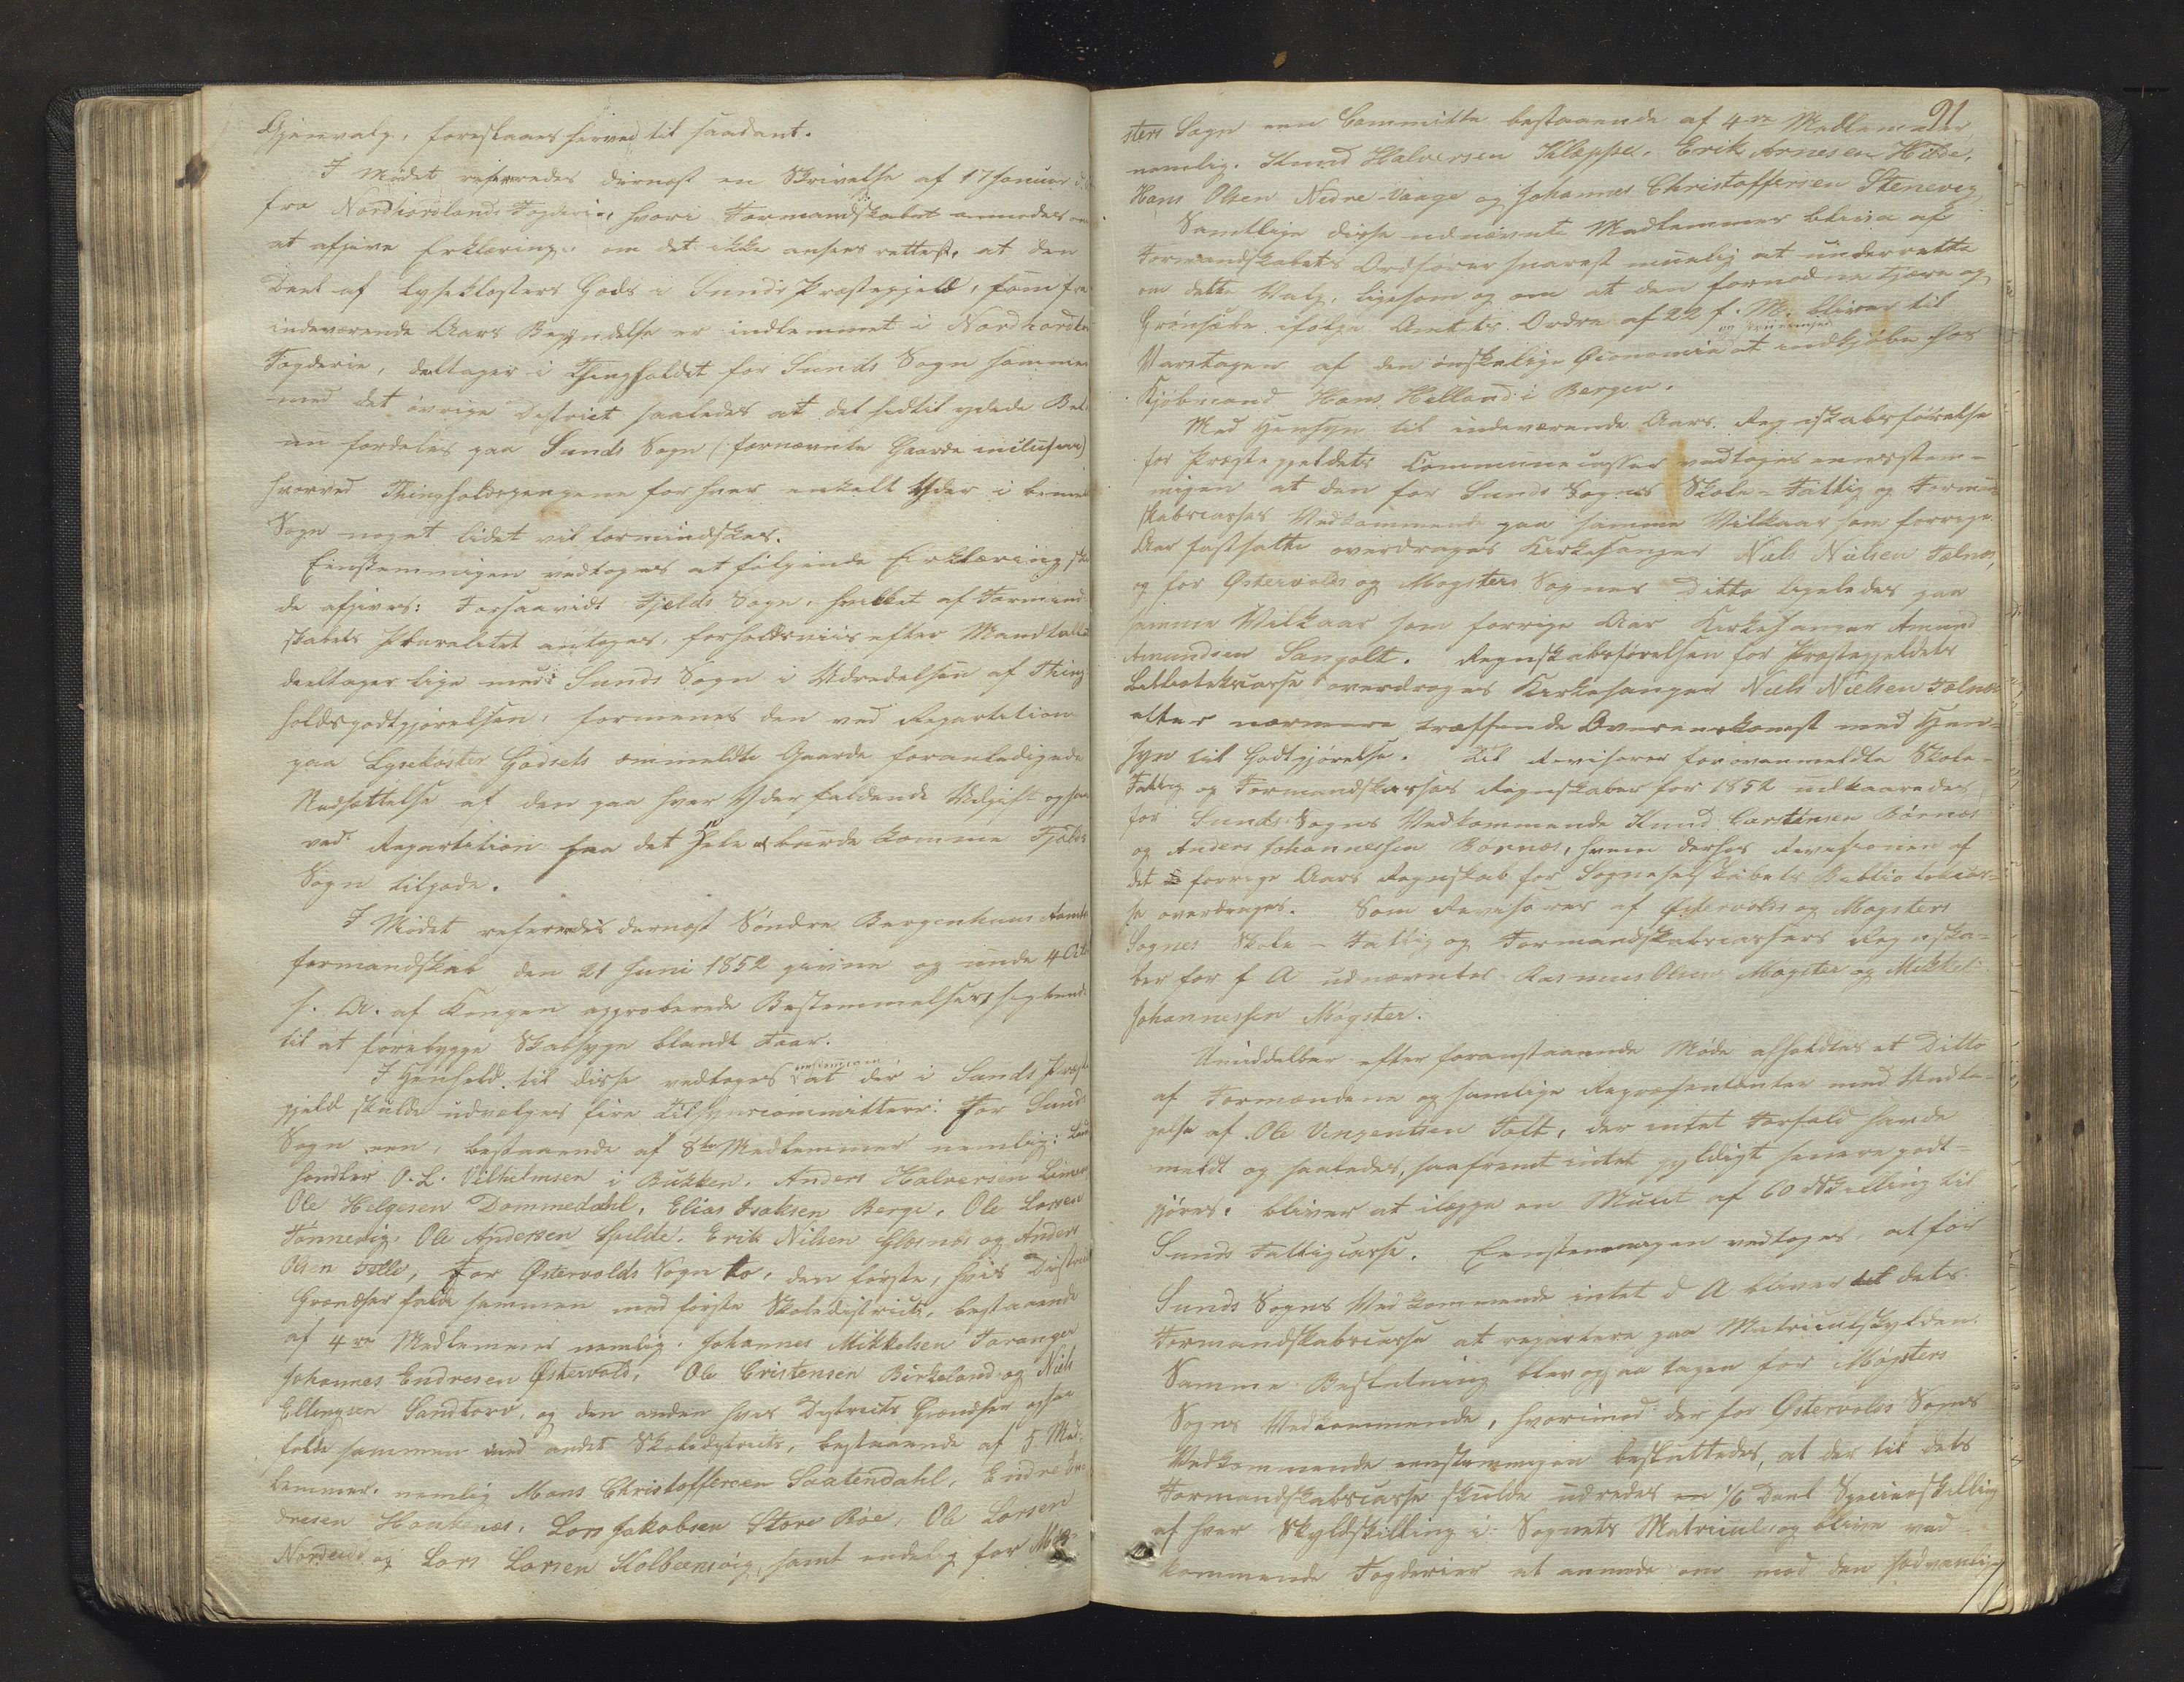 Gjenvalg, foreslaaes herved til saadant.
I Mødet refereredes dernæst en Skrivelse af 17 Januar d.
fra Nordhordlands Fogderie, hvori Formandskabet anmodes om
at afgive Erklæring, om det ikke ansees rettest, at den
Deel af Lyseklosters Gods i Sunds Præstegjeld, som fra
indeværende Aars Begyndelse er indlemmet i Nordhordlands
Fogderie, deeltager i Thingholdet for Sunds Sogn sammen
med det øvrige District saaledes at det hidtil ydede
fordeles paa Sunds Sogn (fornævnte Gaarde inclusive)
hvorved Thingholdspengene for hver enkelt Yder i bemeldte
Sogn noget lidet vil formindskes.
Eenstemmigen vedtoges at følgende Erklæring skulde
de afgives: Forsaavidt Fjelds Sogn, hvilket af Formand-
skabets Pluralitet antoges, forholdsviis efter Mandtallet
deeltager lige med Sunds Sogn i Udredelsen af Thing-
holdsgodtgjørelsen, formenes den ved Repartition
paa Lysekloster Godsets ommeldte Gaarde foranledigede
Nedsættelse af den paa hver Yder faldende Udgift ogsaa
ved Repartition paa det Hele at burde komme Fjelds
Sogn tilgode.
I Mødet refereredes dernæst Søndre Bergenhuus Amts
formandskab den 21 Juni 1852 givne og under 4 Octbr
s. A. af Kongen approberede Bestemmelser, sigtende
til at forebygge Skabsyge blandt Faar.
I Henhold til disse vedtoges eenstemmigen at der i Sunds Præste-
gjeld skulde udvælges fire Tilsynscommitteer: For Sunds
Sogn een, bestaaende af 8te Medlemmer nemlig: Land-
handler O. L. Vilhelmsen i Bukken, Anders Halversen
Ole Helgesen Dommedahl, Elias Isaksen Berge, Ole Larsen
Tønnevig, Ole Andersen Spilde, Erik Nilsen Glæsnæs og Anders
Olsen Tælle, For Østervolds Sogn to, den første, hvis Districts
Grændser falde sammen med første Skoledistricts, bestaaende
af 4re Medlemmer nemlig. Johannes Mikkelsen Taranger
Johannes Endresen Østervold, Ole Cristensen Birkeland og Niels
Ellingsen Sandtorv, og den anden hvis Districts Grændser ogsaa
falde sammen med andet Skoledistricts, bestaaende af 5 Med-
lemmer, nemlig Mons Christoffersen Saatendahl, Endre En-
dresen Haukenæs, Lars Jakobsen Store Bøe, Ole Larsen
Nordeide og Lars Larsen Kolbeensvig, samt endelig for Møg-
91
sters Sogn een Committe bestaaende af 4re Medlemmer
nemlig. Knud Halversen Kleppe, Erik Arnesen Hilde,
Hans Olsen Nedre-Vaage og Johannes Christoffersen Stenevig
Samtlige disse udnævnte Medlemmer blive af
Formandskabets Ordfører snarest muelig at underrette
om dette Valg, ligesom og om at den fornødne Tjære og
Grønsæbe ifølge Amtets Ordre af 22 f. M. bliver til
Varetagen af den ønskelige Oeconomie at indkjøbe hos
Kjøbmand Hans Helland i Bergen.
Med Hensyn til indeværende Aars Regnskabsførelse
for Præstegjeldets Communecasser vedtoges eenstem-
migen at den for Sunds Sognes Skole- Fattig og Formand-
skabscasses Vedkommende paa samme Vilkaar som forrige
Aar fastsatte overdrages Kirkesanger Niels Nielsen Tælnæs,
og for Østervolds og Møgsters Sognes Ditto ligeledes paa
samme Vilkaar som forrige Aar Kirkesanger Amund
Amundsen Sangolt. Regnskabsførelsen for Præstegjeldets
Bibliotekscasse overdroges Kirkesanger Niels Nielsen Tælnæs
efter nærmere træffende Overeenskomst med Hen-
syn til Godtgjørelse. Til Revisorer for ovenmeldte Skole-
Fattig og Formandskasses Regnskaber for 1852 udkaaredes
for Sunds Sogns Vedkommende Knud Carstensen Børnæs
og Anders Johannessen Børnæs, hvem derhos Revisionen af
det forrige Aars Regnskab for Sogneselskabets Bibliotekcas-
se overdroges. Som Revisorer af Østervolds og Møgsters
Sognes Skole- Fattig og Formandskabscassers Regnska-
ber for f A udnævntes Rasmus Olsen Møgster og Mikkel
Johannessen Møgster.
Umiddelbar efter foranstaaende Møde afholdtes et Ditto
af Formændene og samlige Repræsentanter med Undta-
gelse af Ole Vinzentsen Toft, der intet Forfald havde
meldt og saaledes, saafremt intet gyldigt senere godt-
gjøres, bliver at ilægge en Mulct af 60 Skilling til
Sunds Fattigcasse. Eenstemmigen vedtoges, at for
Sunds Sogns Vedkommende intet d A bliver til dets
Formandskabscasse at repartere paa Matriculskylden.
Samme Beslutning blev ogsaa tagen for Møgsters
Sogns Vedkommende, hvorimod der for Østervolds Sogns
Vedkommende eenstemmigen besluttedes, at der til dets
Formandskabscasse skulde udredes en 1/6 Deel Speciesskilling
af hver Skyldskilling i Sognets Matricul og blive ved-
kommende Fogderier at anmode om mod den sædvanlige